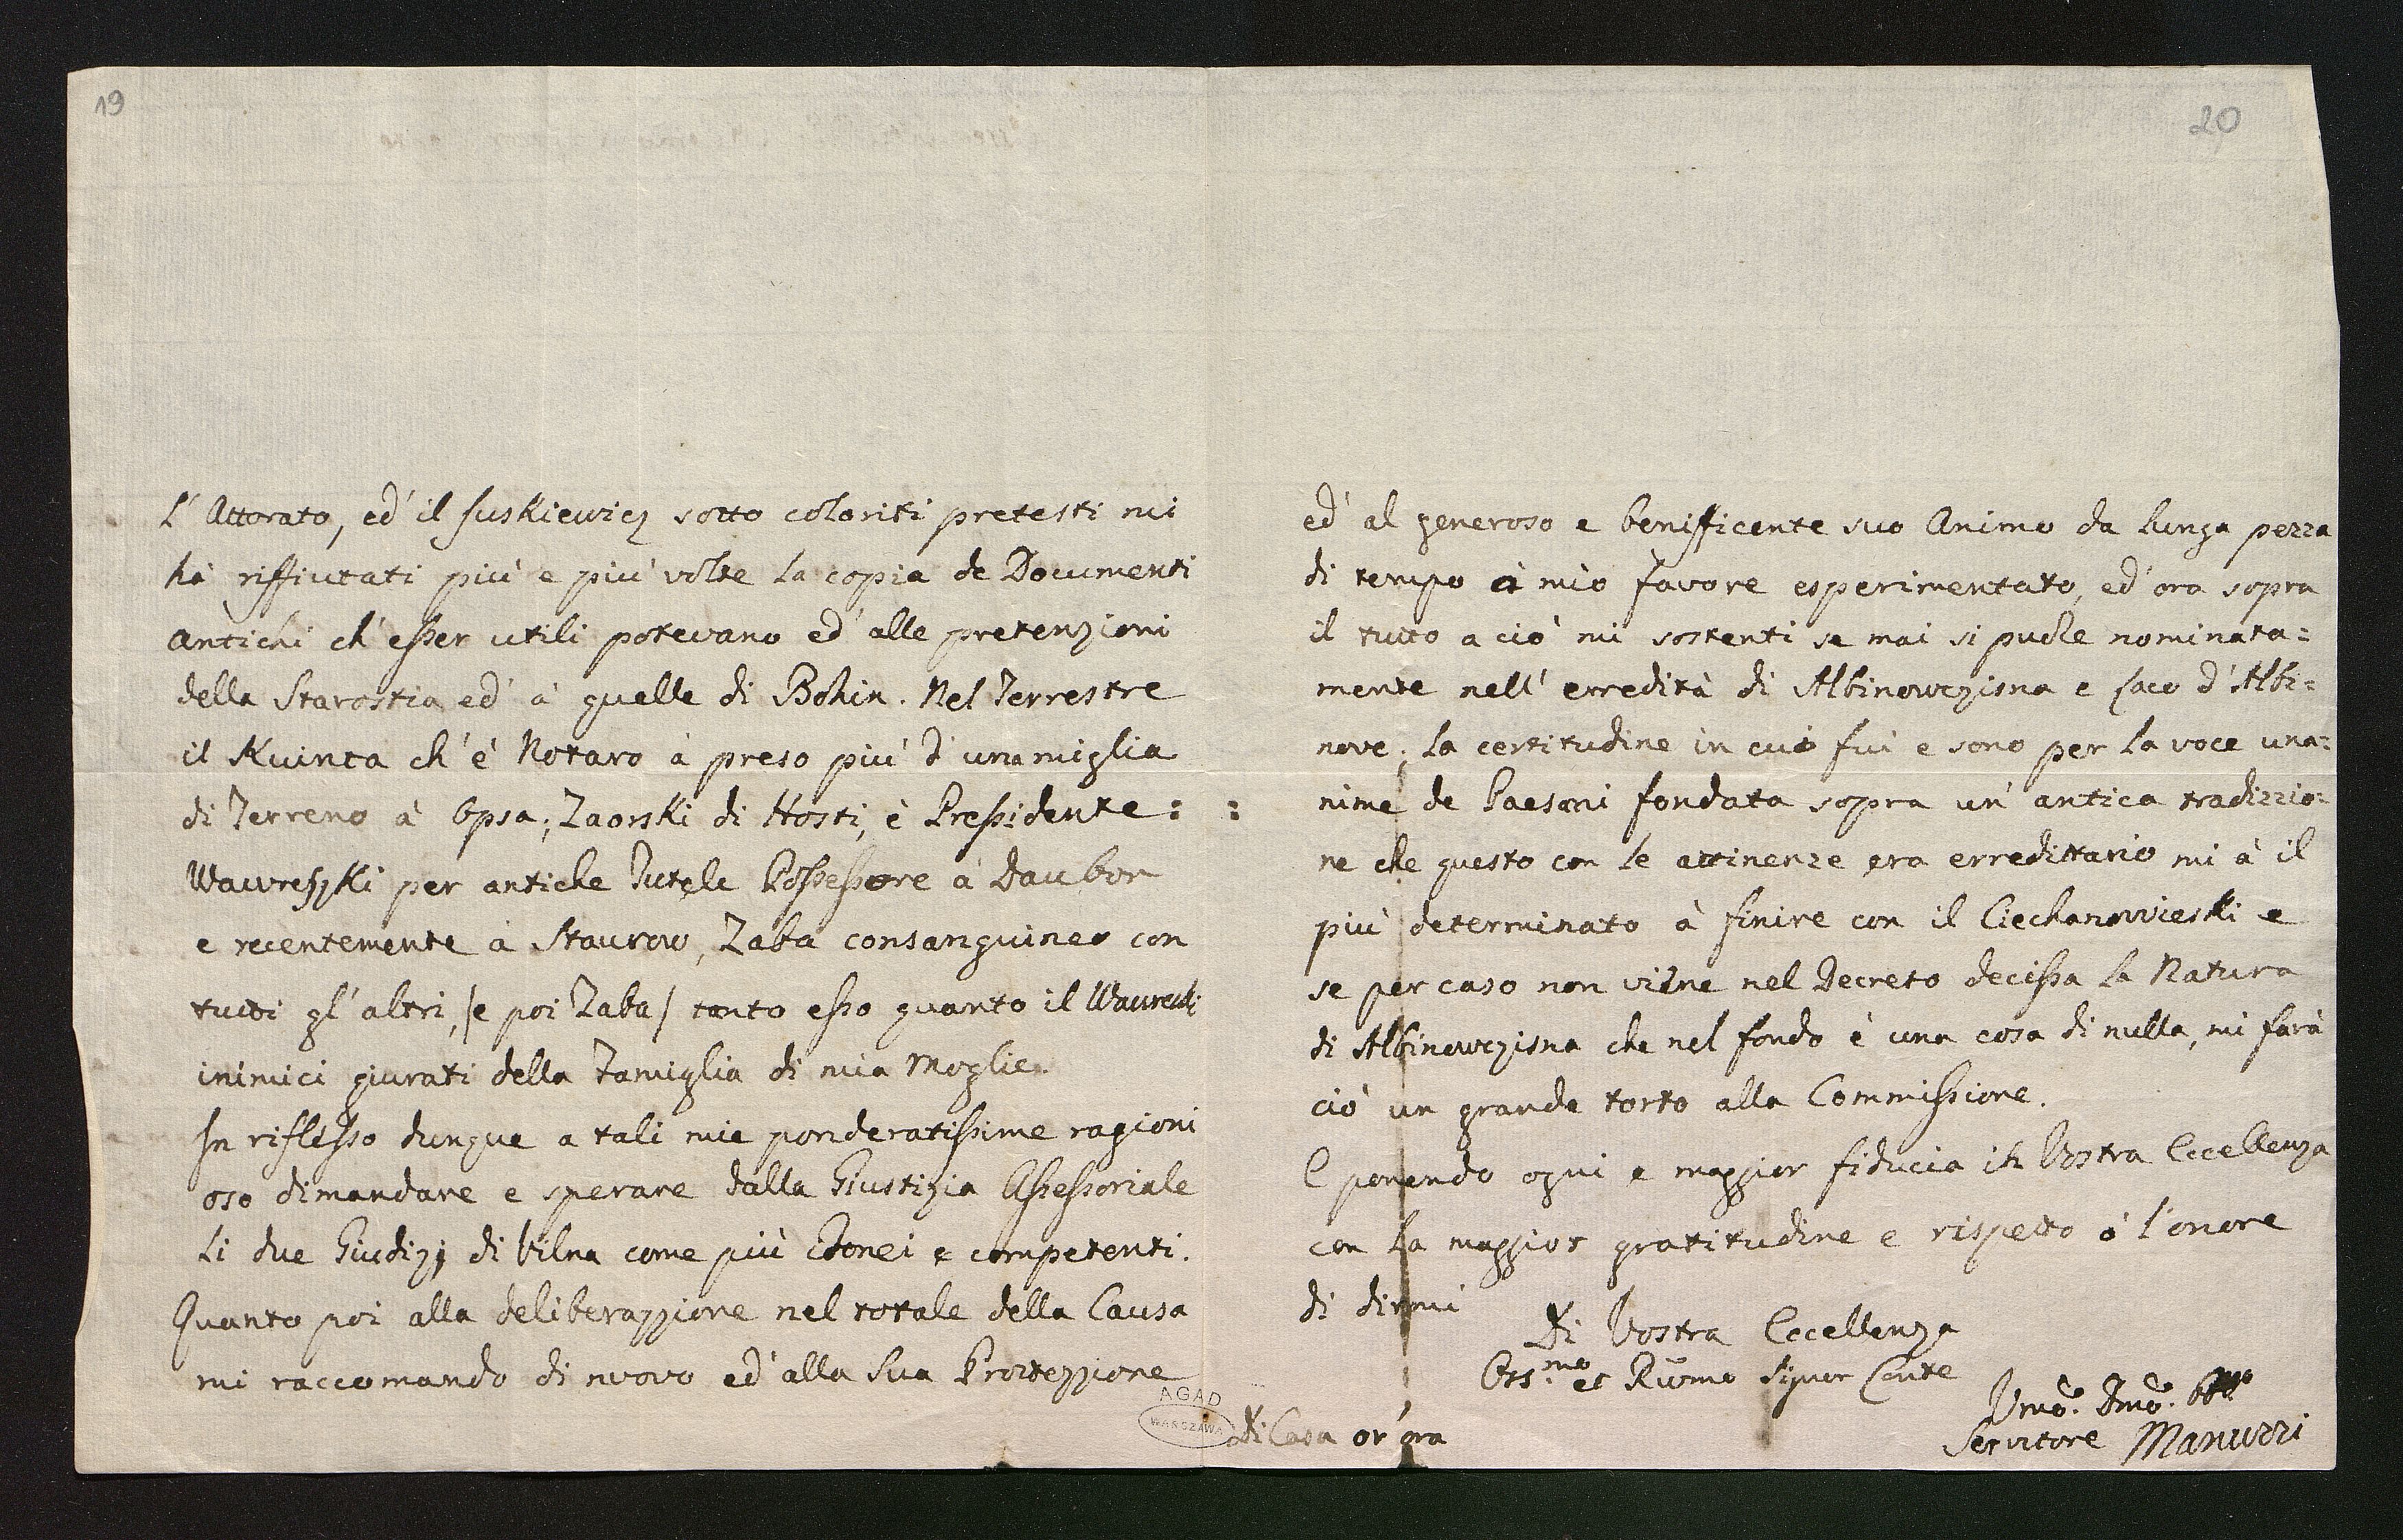 19
L' Attorato, ed' il suskiewicz sotto coloriti pretesti mi
hà riffiutati più e più volte la copia de Documenti
antichi ch' esser utili potevano ed' alle pretenzioni
della Starostia ed' à quelle di Bohin. Nel Terrestre
il Kuinta ch' è Notaro à preso più d' una miglia
di Terreno à Opsa; Zaorski di Hosti, è Pressidente:
Wawreszki per antiche Tutele Possessore à Daubor
e recentemente à Staurow, Zaba consanguineo con
tutti gl' altri, /e poi Zaba/ tanto esso quanto il
inimici giurati della Famiglia di mia Moglie.
In riflesso dunque a tali mie ponderatissime ragioni
oso dimandare e sperare dalla Giustizia Assessoriale
li due Giudizj di Vilna come più idonei e competenti.
Quanto poi alla deliberazzione nel totale della Causa
mi raccomando di nuovo ed' alla Sua Protezzione
AGAD
WARSZAWA
20
ed' al generoso e benifficente suo Animo da lunga pezza
di tempo à mio favore esperimentato, ed' ora sopra
il tutto a ciò mi sostenti se mai si puole nominata=
mente nell' erredità di Albinowczisna e saco d' Albi=
nove; la certitudine in cui fui e sono per la voce una=
: nime de Paesani fondata sopra un' antica tradizzio=
ne che questo con le attinenze era erredittario mi à il
più determinato à finire con il Ciechanowieski e
se per caso non viene nel Decreto decissa la Natura
di Albinowczisna che nel fondo è una cosa di nulla, mi farà
ciò un grande torto alla Commissione.
E ponendo ogni e maggior fiducia in Vostra Eccellenza
con la maggior gratitudine e rispetto ò l'onore
di dirmi
Di Vostra Eccellenza
Oss.mo et Rv̄mo Signor Conte
Umo. Dmo.
Servitore Manuzzi
Di Casa or' ora